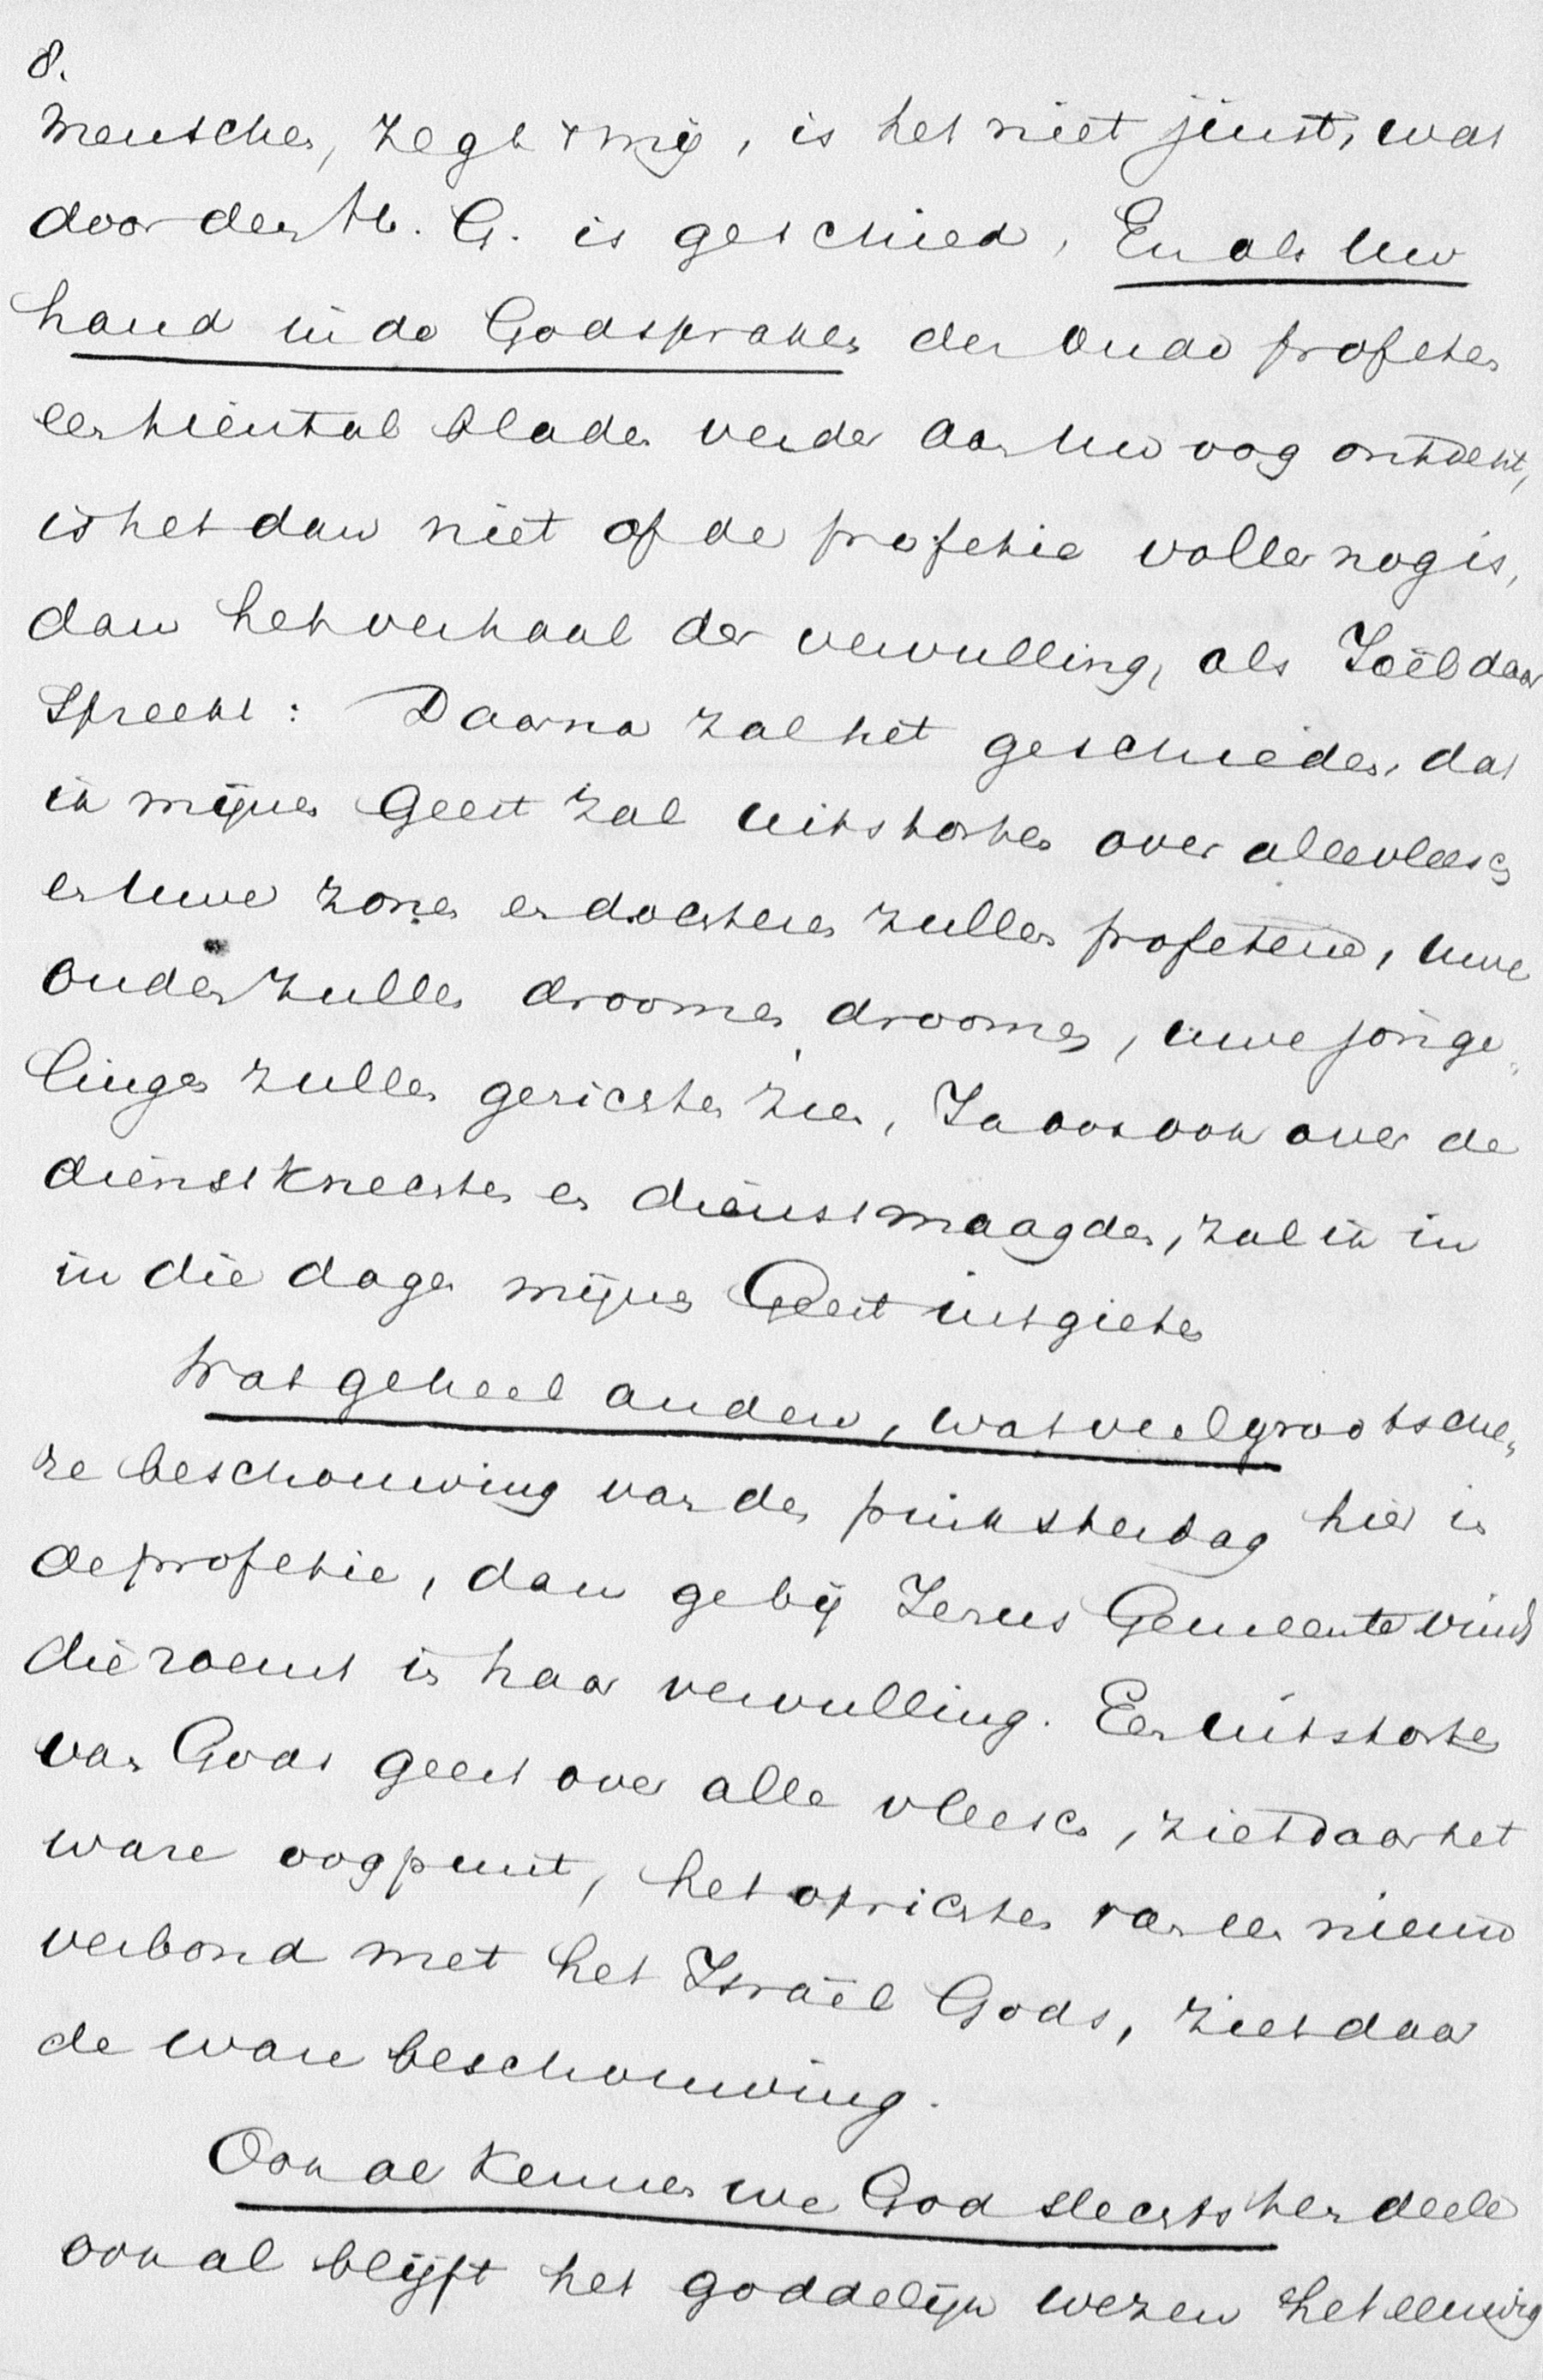 8.
menschen, zegt mij, is het niet juist, wat
door den H. G. is geschied. En als Uw
hand in de Godspraken der oude profeten
een tiental bladen verder aan Uw oog ontdekt,
is het dan niet of de profetie voller nog is,
dan het verhaal der vervulling, als Joël daar
spreekt: Daarna zal het geschieden, dat
ik mijnen Geest zal uitstorten over alle vleesch
en Uwe zonen en dochteren zullen profeteren, Uwe
ouden zullen droomen droomen, uwe jonge„
lingen zullen gezichten zien, Ja ook ook over de
dienstknechten en dienstmaagden, zal ik in
in die dagen mijnen Geest uitgieten
Wat geheel andere, wat veel grootsche„
re beschouwing van den pinksterdag hier in
de profetie, dan ge bij Jezus Gemeente vindt
die roemt in haar vervulling. Een uitstorten
van Gods geest over alle vleesch, ziet daar het
ware oogpunt, het oprichten van een nieuw
verbond met het Israël Gods, ziet daar
de ware beschouwing.
Ook al kennen we God slechts ten deele
ook al blijft het goddelijk wezen het eeuwig